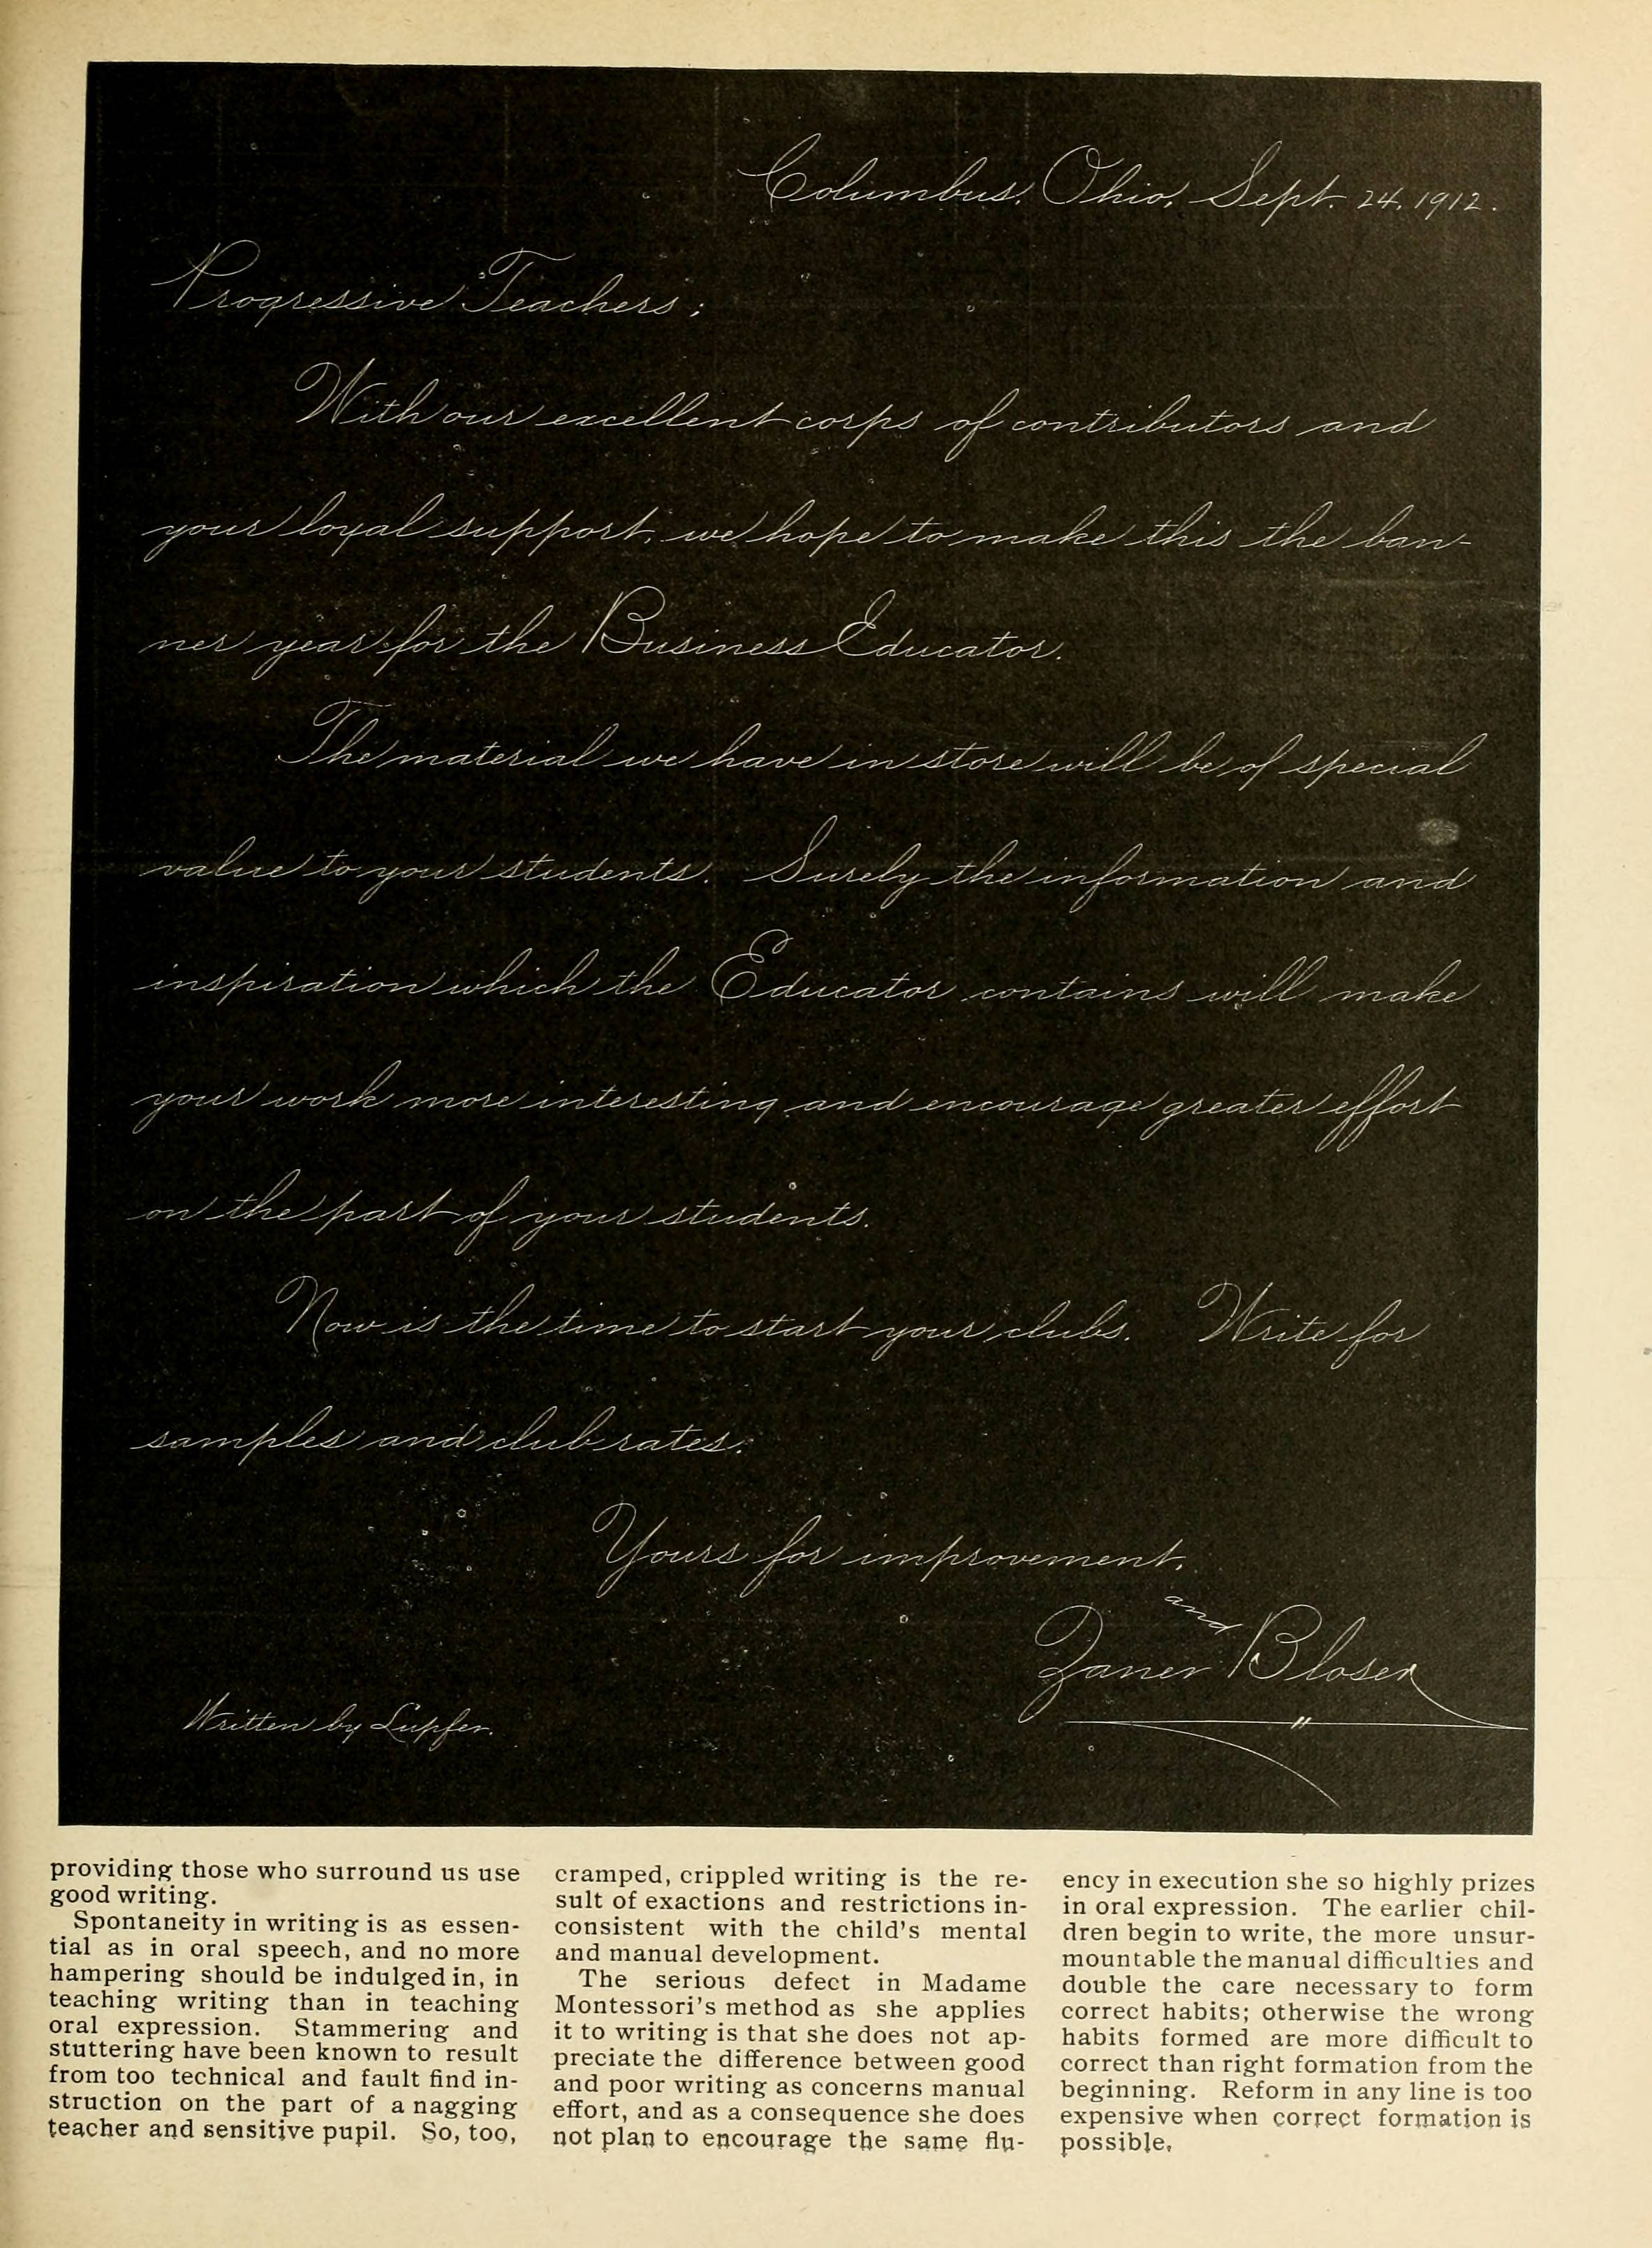 Columbus, Ohio, Sept. 24, 1912.
Progressive Teachers;
With our excellent corps of contributors and
your loyal support, we hope to make this the ban-
ner year for the Business Educator.
The material we have in store will be of special
value to your students. Surely the information and
inspiration which the Educator contains will make
your work more interesting and encourage greater effort
on the part of your students.
Now is the time to start your clubs. Write for
samples and club rates.
Yours for improvement,
Zaner and Bloser
Written by Lupfer.
providing those who surround us use
good writing.
Spontaneity in writing is as essen-
tial as in oral speech, and no more
hampering should be indulged in, in
teaching writing than in teaching
oral expression. Stammering and
stuttering have been known to result
from too technical and fault find in-
struction on the part of a nagging
teacher and sensitive pupil. So, too,
cramped, crippled writing is the re-
sult of exactions and restrictions in-
consistent with the child's mental
and manual development.
The serious defect in Madame
Montessori's method as she applies
it to writing is that she does not ap-
preciate the difference between good
and poor writing as concerns manual
effort, and as a consequence she does
not plan to encourage the same flu-
ency in execution she so highly prizes
in oral expression. The earlier chil-
dren begin to write, the more unsur-
mountable the manual difficulties and
double the care necessary to form
correct habits; otherwise the wrong
habits formed are more difficult to
correct than right formation from the
beginning. Reform in any line is too
expensive when correct formation is
possible.